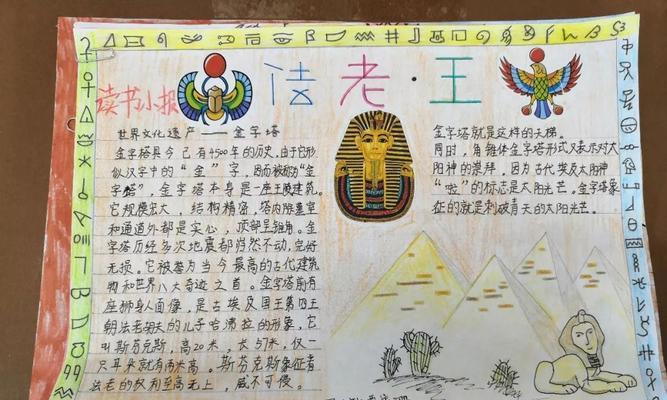 读书小报
法老·王
世界文化遗产——金字塔
金字塔具今已有4500年的历史,由于它形
似汉字中的“金”字,因而被称为“金
字塔”,金字塔本身是一座王陵建筑。
它规模宏大,结构精密,塔内除墓室
和通道外都是实心,顶部呈锥角。金
字塔历经多次地震都岿然不动,完好
无损。它被誉为当今最高的古代建筑
物和世界八大奇迹之首。金字塔前有
座狮身人面像,是古埃及国王第四王
朝法老胡夫的儿子哈佛拉的形象,它
叫斯芬克斯,高20米,长57米,仅一
只耳朵就有两米高。斯芬克斯象征着
法老的权利至高无上,威不可侵。
金字塔就是这样的天梯。
同时,角锥体金字塔形式又表示对太
阳神的崇拜,因为古代埃及太阳神
“啦”的标志是太阳光芒。金字塔象
征的就是刺破青天的太阳光芒。